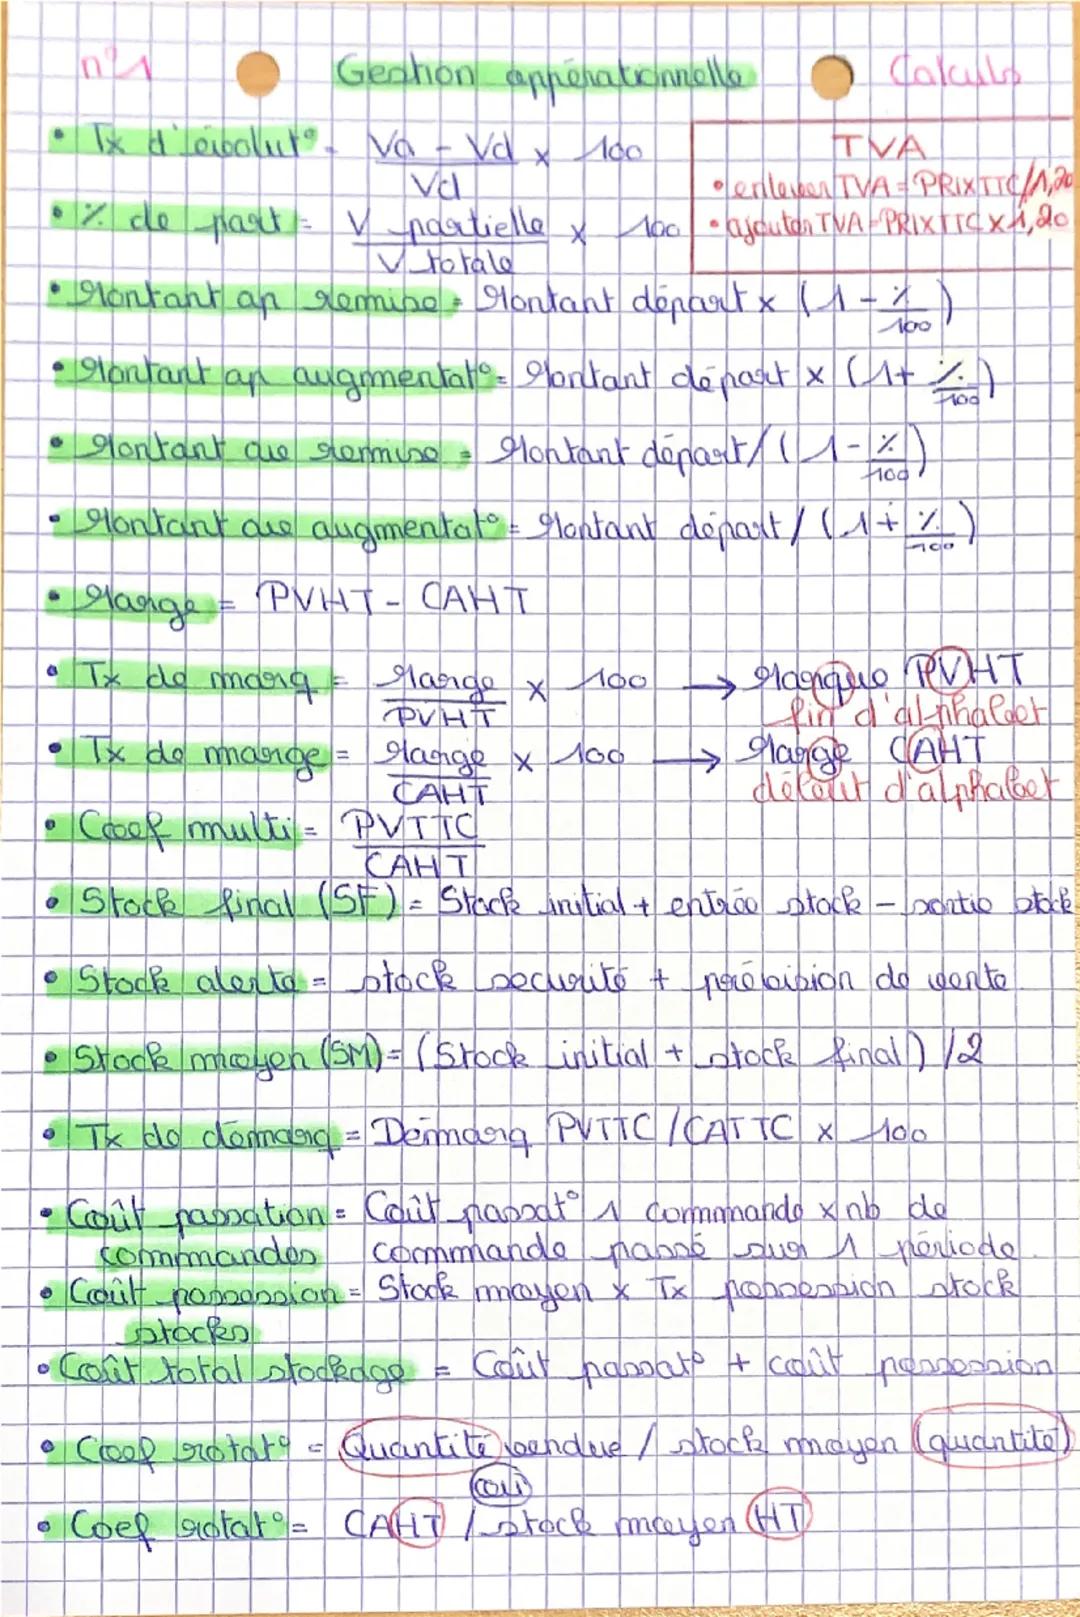 n°1 Gestion appérationnelle Calculs
• Tx d'évolut° = Va - Vd / Vd x 100
TVA
• enlever TVA = PRIXTTC/1,20
• ajouter TVA = PRIXTTC x 1,20
• % de part = V partielle / V totale x 100
• Montant ap remise = Montant départ x (1 - %/100)
• Montant ap augmentat° = Montant départ x (1 + %/100)
• Montant av remise = Montant départ / (1 - %/100)
• Montant av augmentat° = Montant départ / (1 + %/100)
• Marge = PVHT - CAHT
• Tx de marq = Marge / PVHT x 100 → Marque PVHT
fin d'alphabet
• Tx de marge = Marge / CAHT x 100 → Marge CAHT
début d'alphabet
• Coef multi = PVTTC / CAHT
• Stock final (SF) = Stock initial + entrée stock - sortie stock
• Stock alerte = stock securité + prévision de vente
• Stock moyen (SM) = (Stock initial + stock final) / 2
• Tx de démarq = Démarq PVTTC / CATTC x 100
• Coût passation = Coût passat° 1 commande x nb de
commandes commande passé sur 1 période.
• Coût possession = Stock moyen x Tx possession stock
stocks
• Coût total stockage = Coût passat° + coût possession
• Coef rotat° = Quantité vendue / stock moyen (quantité)
ou
• Coef rotat° = CAHT / stock moyen HT